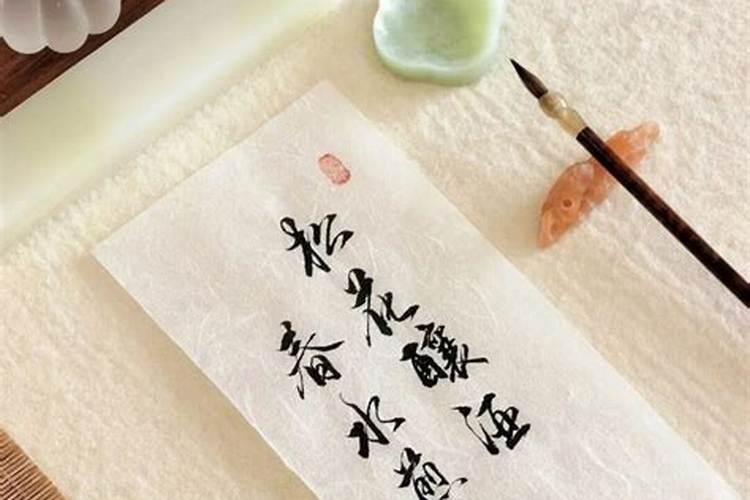 松花釀酒
春水煎